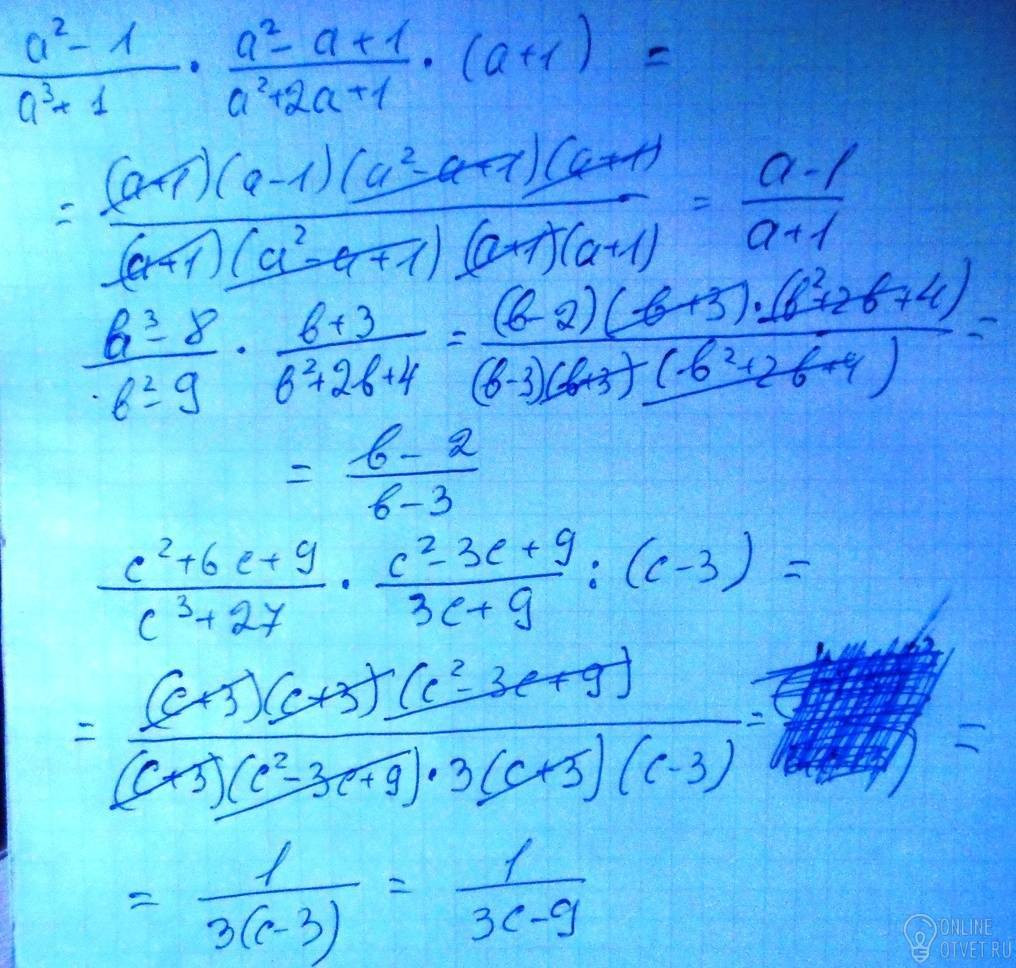 (a²-1)/(a³+1) · (a²-a+1)/(a²+2a+1) · (a+1) =
= ((a+1)(a-1)(a²-a+1)(a+1))/((a+1)(a²-a+1)(a+1)(a+1)) = (a-1)/(a+1)
(в³-8)/(в²-9) · (в+3)/(в²+2в+4) = ((в-2)(в+3)·(в²+2в+4))/((в-3)(в+3)(в²+2в+4)) =
= (в-2)/(в-3)
(c²+6c+9)/(c³+27) · (c²-3c+9)/(3c+9) : (c-3) =
= ((c+3)(c+3)(c²-3c+9))/((c+3)(c²-3c+9)·3(c+3)(c-3)) = =
= 1/(3(c-3)) = 1/(3c-9)
ONLINE
OTVET.RU